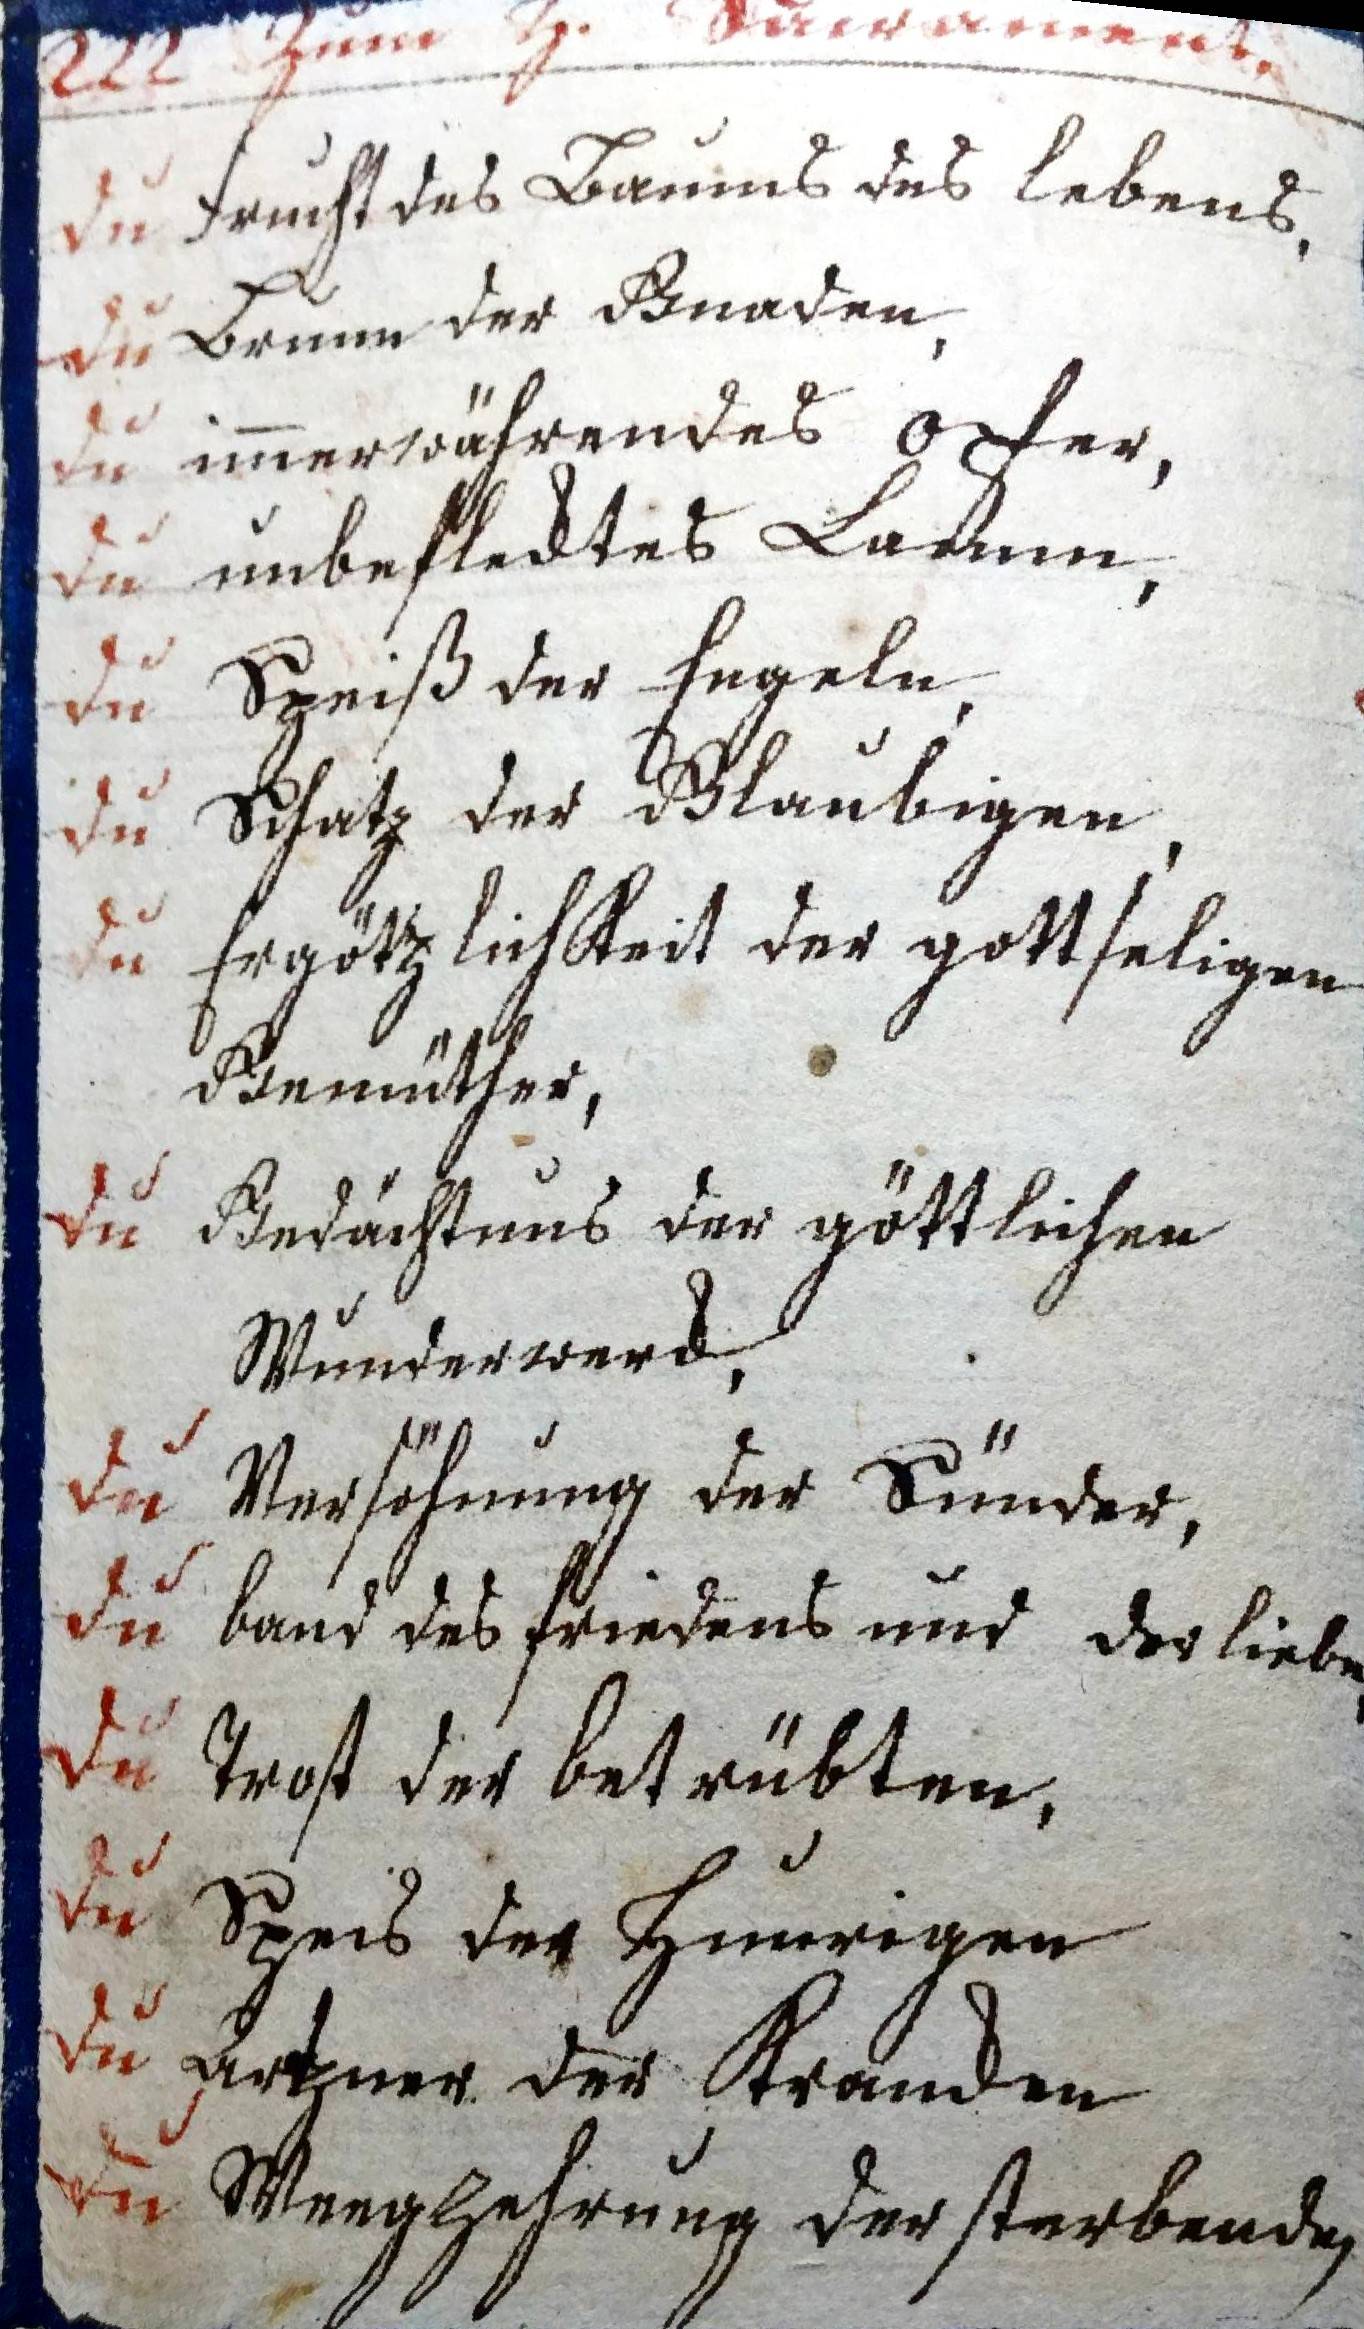 222 Zum H. Sacrament.
du frucht des Baums des lebens,
du Brunn der Gnaden,
du im̅erwährendes opfer,
du unbeflecktes Lamm,
du Speiß der Engeln,
du Schatz der Glaubigen,
du Ergötzlichkeit der gottseligen
Gemüther,
du Gedächtnus der göttlichen
Wunderwerck,
du Versöhnung der Sünder,
du band des friedens und der liebe,
du Trost der betrübten,
du Speis der Hunrigen
du artzner der Krancken
du Weegzehrung der sterbenden,